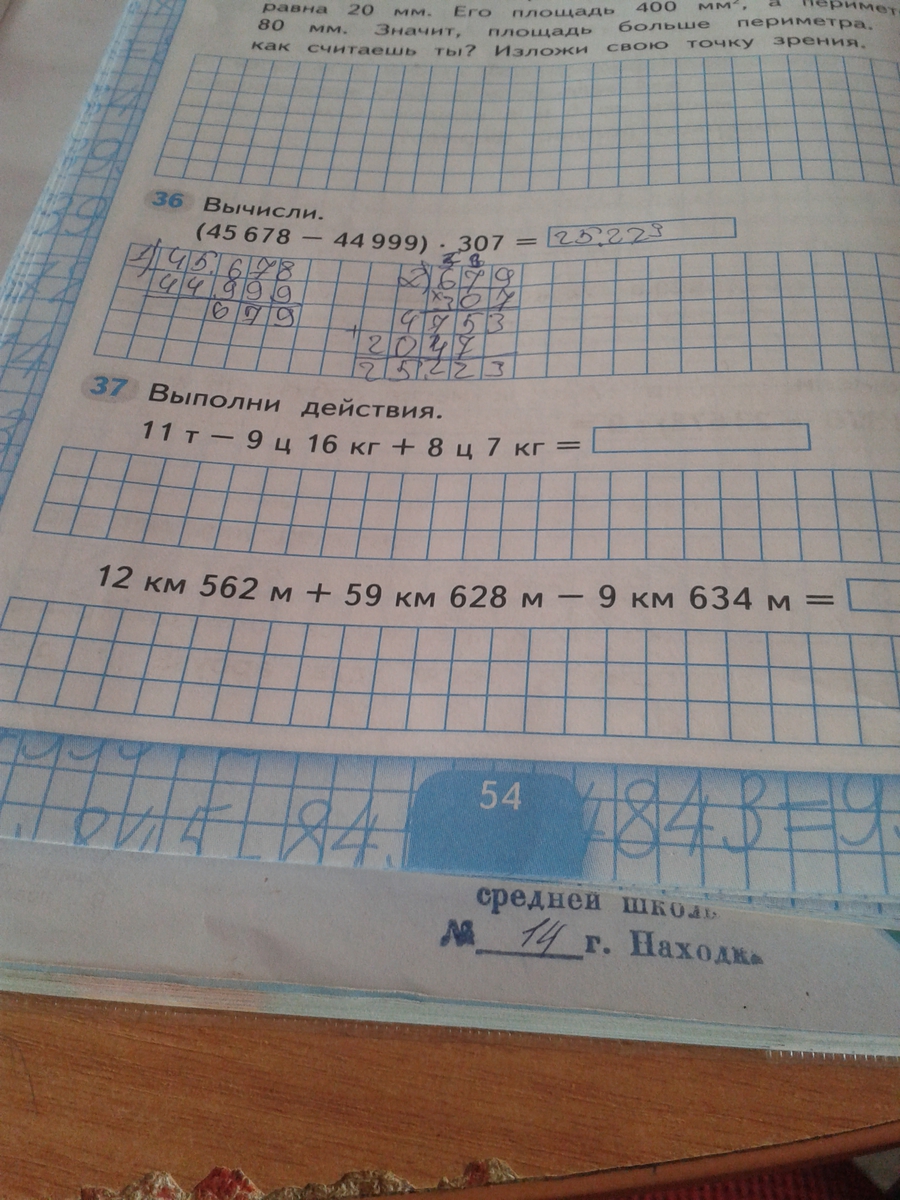 равна 20 мм. Его площадь 400 мм², а перимет
80 мм. Значит, площадь больше периметра.
как считаешь ты? Изложи свою точку зрения.
36 Вычисли.
(45 678 − 44 999) · 307 = 25.229
1) 45.678
44999
679
2) 679
×307
4753
+ 2047
25.223
37 Выполни действия.
11 т − 9 ц 16 кг + 8 ц 7 кг =
12 км 562 м + 59 км 628 м − 9 км 634 м =
54
843=9
средней школь
№ 14 г. Находка